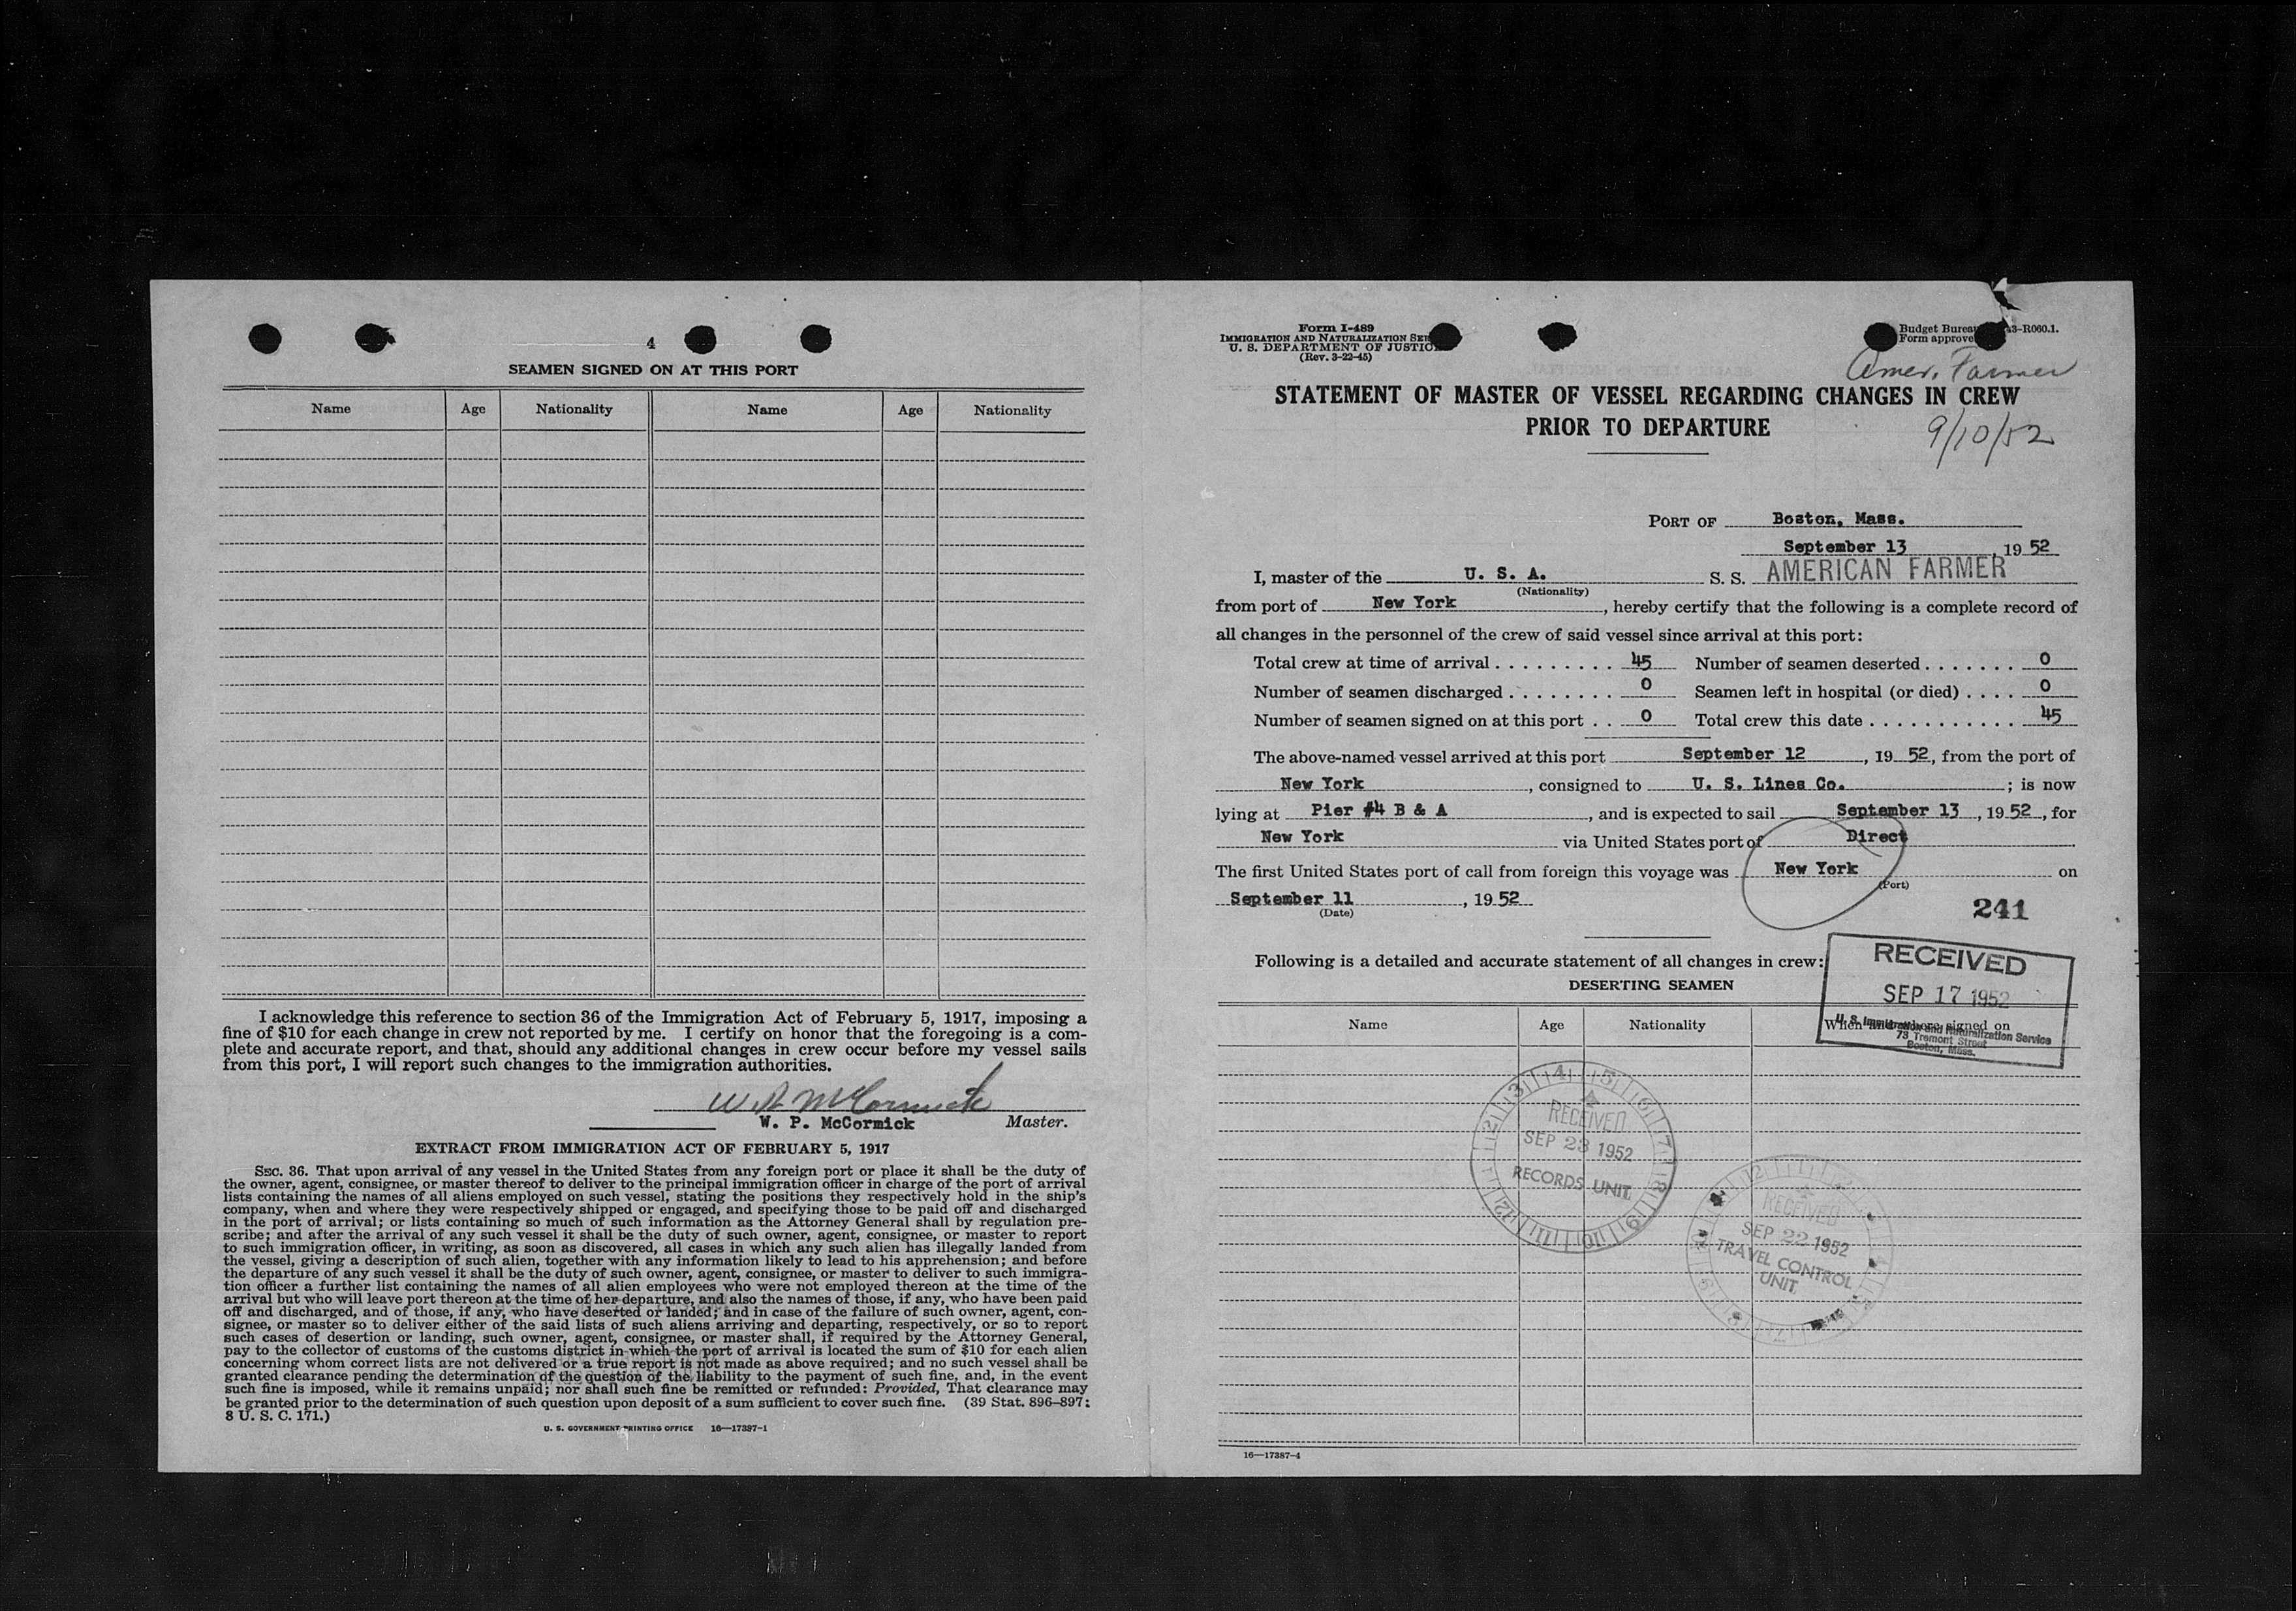 4
SEAMEN SIGNED ON AT THIS PORT
Name Age Nationality Name Age Nationality
I acknowledge this reference to section 36 of the Immigration Act of February 5, 1917, imposing a
fine of $10 for each change in crew not reported by me. I certify on honor that the foregoing is a com-
plete and accurate report, and that, should any additional changes in crew occur before my vessel sails
from this port, I will report such changes to the immigration authorities.
W. P. McCormick
W. P. McCormick Master.
EXTRACT FROM IMMIGRATION ACT OF FEBRUARY 5, 1917
SEC. 36. That upon arrival of any vessel in the United States from any foreign port or place it shall be the duty of
the owner, agent, consignee, or master thereof to deliver to the principal immigration officer in charge of the port of arrival
lists containing the names of all aliens employed on such vessel, stating the positions they respectively hold in the ship's
company, when and where they were respectively shipped or engaged, and specifying those to be paid off and discharged
in the port of arrival; or lists containing so much of such information as the Attorney General shall by regulation pre-
scribe; and after the arrival of any such vessel it shall be the duty of such owner, agent, consignee, or master to report
to such immigration officer, in writing, as soon as discovered, all cases in which any such alien has illegally landed from
the vessel, giving a description of such alien, together with any information likely to lead to his apprehension; and before
the departure of any such vessel it shall be the duty of such owner, agent, consignee, or master to deliver to such immigra-
tion officer a further list containing the names of all alien employees who were not employed thereon at the time of the
arrival but who will leave port thereon at the time of her departure, and also the names of those, if any, who have been paid
off and discharged, and of those, if any, who have deserted or landed; and in case of the failure of such owner, agent, con-
signee, or master so to deliver either of the said lists of such aliens arriving and departing, respectively, or so to report
such cases of desertion or landing, such owner, agent, consignee, or master shall, if required by the Attorney General,
pay to the collector of customs of the customs district in which the port of arrival is located the sum of $10 for each alien
concerning whom correct lists are not delivered or a true report is not made as above required; and no such vessel shall be
granted clearance pending the determination of the question of the liability to the payment of such fine, and, in the event
such fine is imposed, while it remains unpaid; nor shall such fine be remitted or refunded: Provided, That clearance may
be granted prior to the determination of such question upon deposit of a sum sufficient to cover such fine. (39 Stat. 896–897;
8 U. S. C. 171.)
U. S. GOVERNMENT PRINTING OFFICE 16—17387-1
Form I-489
IMMIGRATION AND NATURALIZATION
U. S. DEPARTMENT OF JUSTICE
(Rev. 3-22-45)
Budget Bureau 43-R060.1.
Form approve
Amer. Farmer
STATEMENT OF MASTER OF VESSEL REGARDING CHANGES IN CREW
PRIOR TO DEPARTURE
9/10/52
PORT OF Boston, Mass.
September 13, 19 52
I, master of the U. S. A. S. S. AMERICAN FARMER
(Nationality)
from port of New York, hereby certify that the following is a complete record of
all changes in the personnel of the crew of said vessel since arrival at this port:
Total crew at time of arrival . . . . . . . . . 45 Number of seamen deserted . . . . . . . 0
Number of seamen discharged . . . . . . . . 0 Seamen left in hospital (or died) . . . . 0
Number of seamen signed on at this port . . 0 Total crew this date . . . . . . . . . . . 45
The above-named vessel arrived at this port September 12, 19 52, from the port of
New York, consigned to U. S. Lines Co.; is now
lying at Pier #4 B & A, and is expected to sail September 13, 19 52, for
New York via United States port of Direct
The first United States port of call from foreign this voyage was New York on
(Port)
September 11, 19 52
(Date)
241
Following is a detailed and accurate statement of all changes in crew:
DESERTING SEAMEN
RECEIVED
SEP 17 1952
U. S. Immigration and Naturalization Service
73 Tremont Street
Boston, Mass.
Name Age Nationality When and where signed on
RECEIVED
SEP 23 1952
RECORDS UNIT
RECEIVED
SEP 22 1952
TRAVEL CONTROL
UNIT
16—17387-4